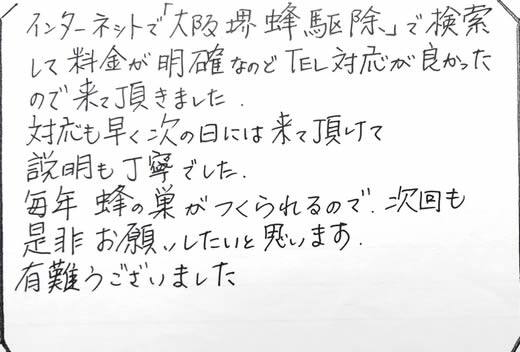 インターネットで「大阪堺蜂駆除」で検索
して料金が明確なのとTEL対応が良かった
ので来て頂きました.
対応も早く次の日には来て頂けて
説明も丁寧でした.
毎年 蜂の巣がつくられるので.次回も
是非お願いしたいと思います.
有難うございました